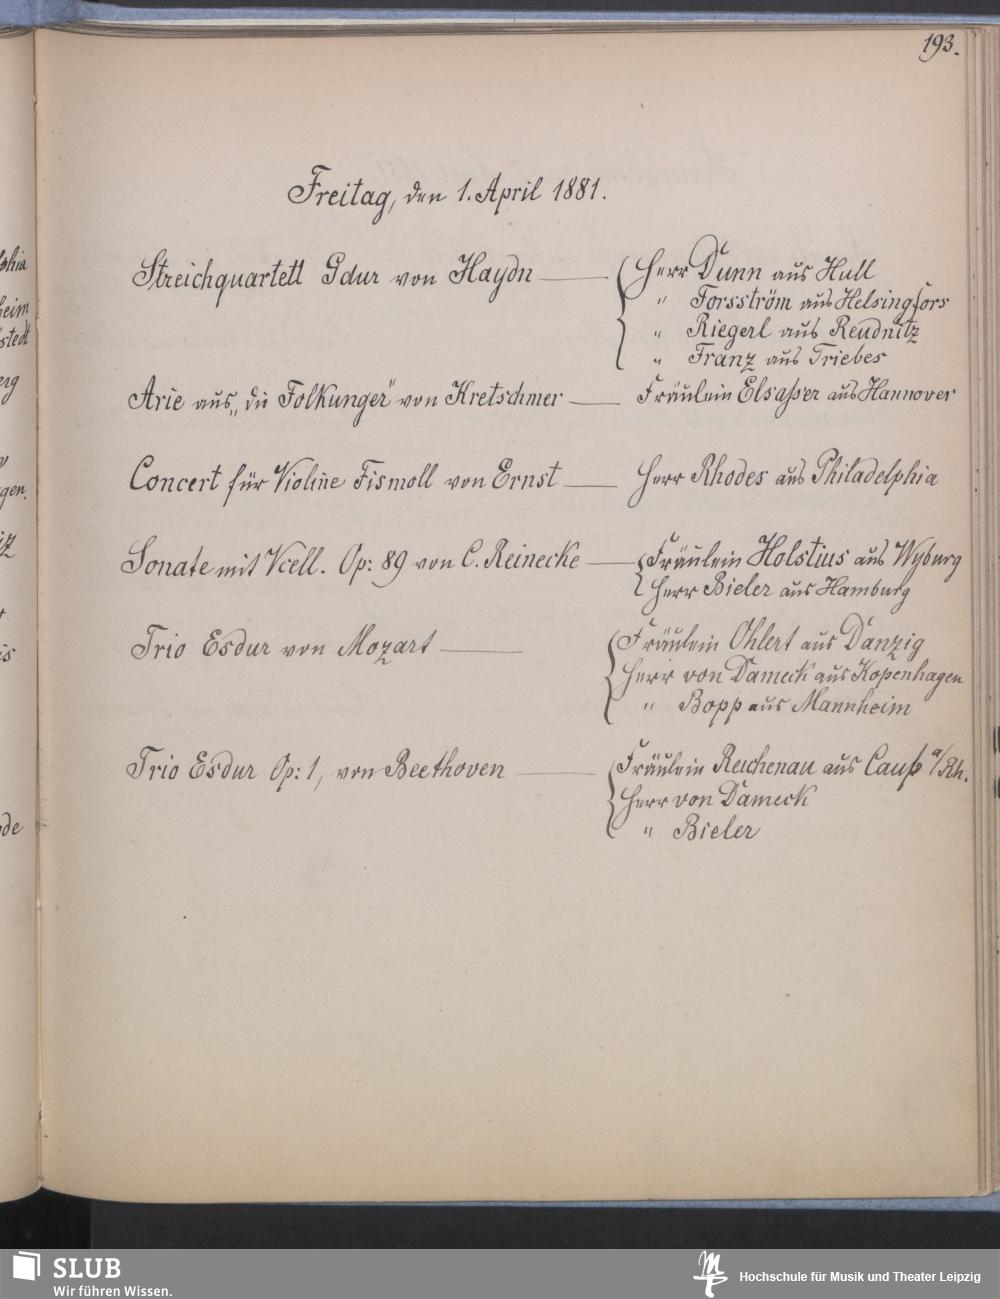 193.
Freitag, den 1. April 1881.
Streichquartett Gdur von Haydn — Herr Dunn aus Hull
" Forsström aus Helsingfors
" Riegerl aus Reudnitz
" Franz aus Triebes
Arie aus „die Folkunger" von Kretschmer — Fräulein Elsaßer aus Hannover
Concert für Violine Fismoll von Ernst — Herr Rhodes aus Philadelphia
Sonate mit Vcell. Op: 89 von C. Reinecke — Fräulein Holstius aus Wyburg
Herr Bieler aus Hamburg
Trio Esdur von Mozart — Fräulein Ohlert aus Danzig
Herr von Dameck aus Kopenhagen
" Bopp aus Mannheim
Trio Esdur Op: 1, von Beethoven — Fräulein Reichenau aus Caub a/Rh.
Herr von Dameck
" Bieler
SLUB
Wir führen Wissen.
Hochschule für Musik und Theater Leipzig